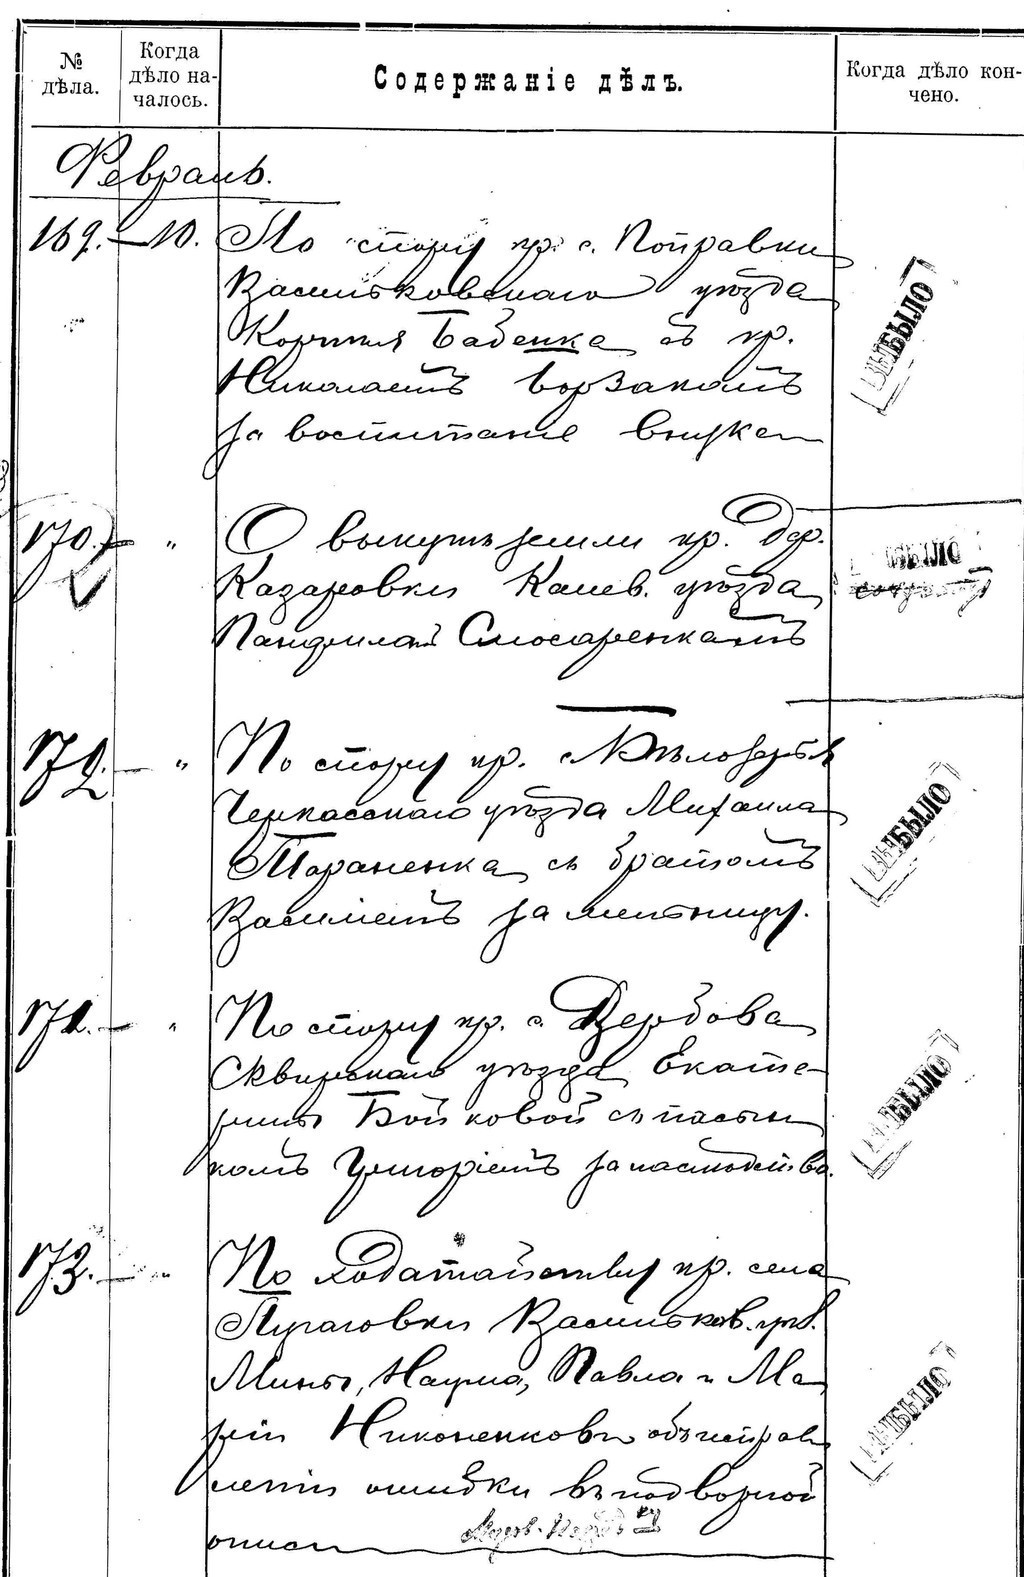 № дѣла.
Когда дѣло на-
чалось.
Содержаніе дѣлъ.
Когда дѣло кон-
чено.
Февраль.
169. — 10. По спору кр. с. Поправки
Васильковскаго уѣзда
Корнилія Бабенка съ кр.
Николаемъ
за воспитаніе внука
170. — " О выкупѣ земли кр. дер.
Казаровки Канев. уѣзда
Панфиломъ Слюсаренкомъ
ВЫБЫЛО
172. — " По спору кр. с. Бѣлозерья
Черкасскаго уѣзда Михаила
Тараненка съ братомъ
Василіемъ за мельницу.
ВЫБЫЛО
171. — " По спору кр. с. Вербова
Сквирскаго уѣзда Екате-
рины Бойковой съ пасын-
комъ Григоріемъ за наслѣдство.
ВЫБЫЛО
173. — " По ходатайству кр. села
Пугачовки Васильков. уѣз.
Мины, Наума, Павла и Ма
ріи Никоненковых объ исправ
леніи ошибки въ подворной
описи
ВЫБЫЛО